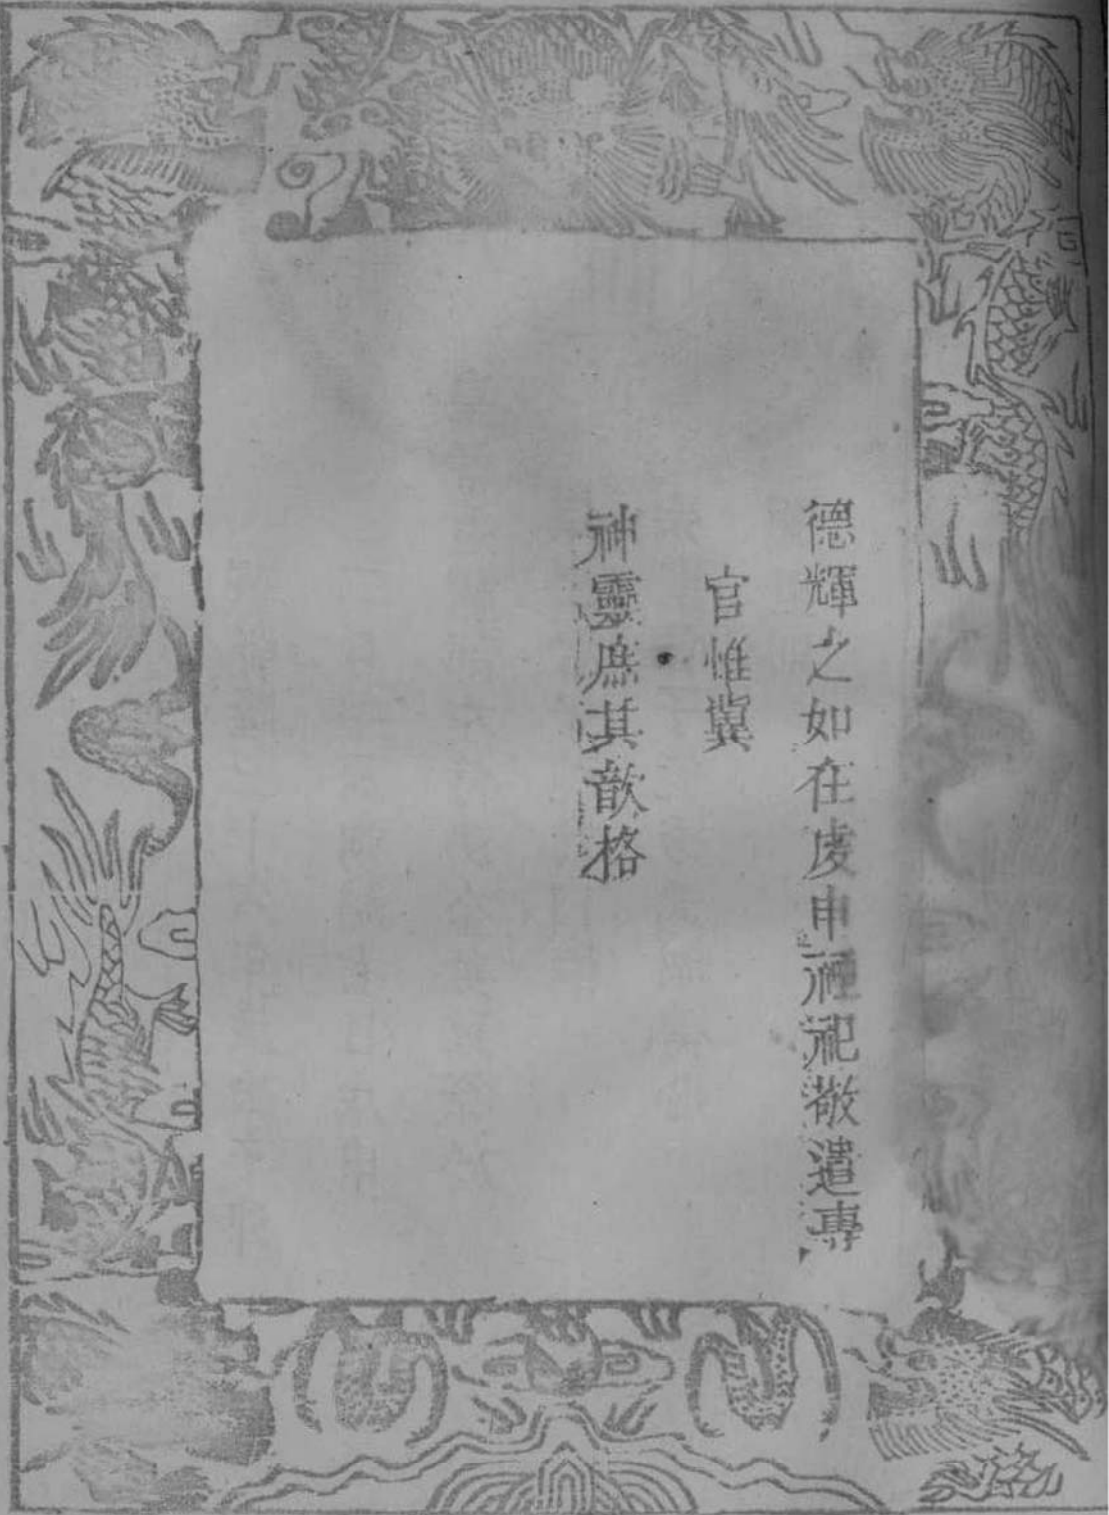 德輝之如在虔申禋祀敬遣專
官惟冀
神靈庶其歆格